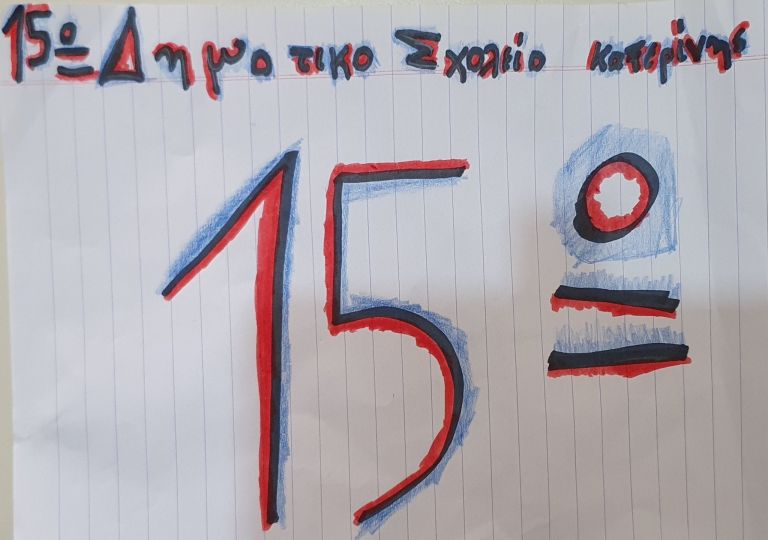 15º Δημοτικο Σχολείο κατερίνης
15º